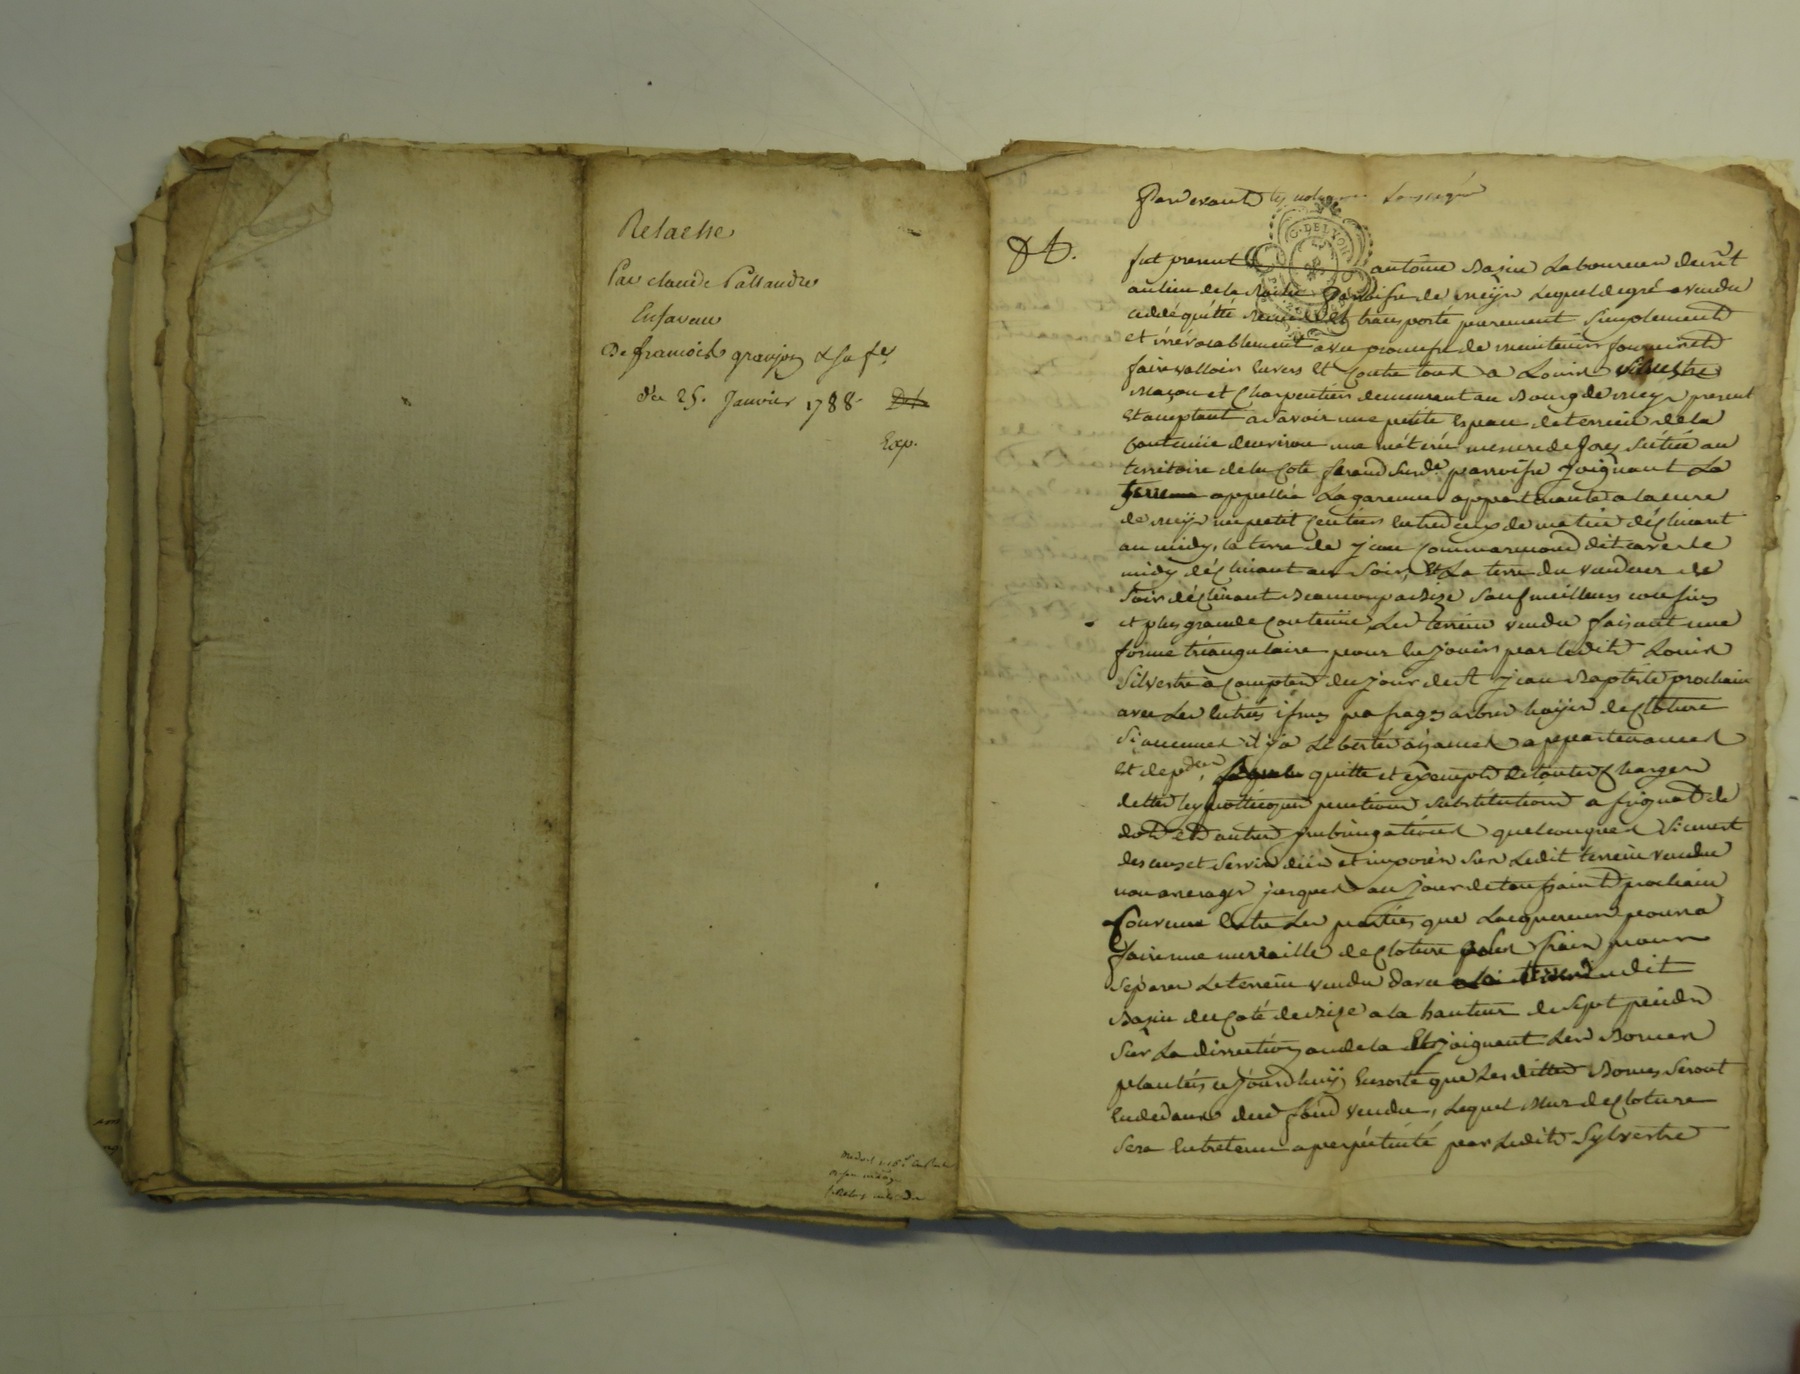 Relache
Par claude Pallandre
En faveur
De francois granjon & sa fe
du 25. Janvier 1788
Exp.
Pardevant les notaires soussignés
G. DE LYON
fut present antoine Bazin Laboureur demt
au lieu de la Roche Paroisse de meys Lequel de gré a vendu
cédé quitté remis et transporté purement simplement
et irrévocablement avec promesse de maintenir fournir et
faire valloir envers et contre tous a Louis Silvestre
maçon et Charpentier demeurant au Bourg de meys present
et acceptant a sçavoir une petite espace de terrein de la
contenüe d'environ une méterée mesure de forez scituée au
territoire de la Cote susd.e parroisse joignant La
terre appellée La garenne appartenante a la cure
de meys un petit sentier entre deux de matin déclinant
au midy, la terre de jean dit le
midy déclinant au soir, et La terre du vendeur de
soir déclinant Beaucoup a Bize sauf meilleurs confins
et plus grande contenüe, Led terrein vendu faisant une
forme triangulaire pour en jouir par ledit Louis
Silvestre a compter du jour de st jean Baptiste prochain
avec Les entrées issues passages arbres hayes de cloture
si aucunes il y a Libertés aisances appartenances
et depend. quitte et exempt de toutes charges
dettes hypotteques pentions substitutions assignat de
dot et autres subrogations quelconques si ce n'est
des cens et servis dus et imposés sur Ledit terrein vendu
non arreragés jusques au jour de toussaint prochain
Convenu entre Les parties que Lacquereur pourra
faire une murraille de cloture frais pour
séparer Le terrein vendu d'avec dudit
Bazin du coté de Bize a la hauteur de sept pieds
sur La dirrection au dela et joignant Les Bornes
plantées ce jourd'huy, ensorte que Lesdittes Bornes seront
en dedans dud fond vendu, Lequel mur de cloture
sera entretenu a perpétuité par Ledit Sylvestre